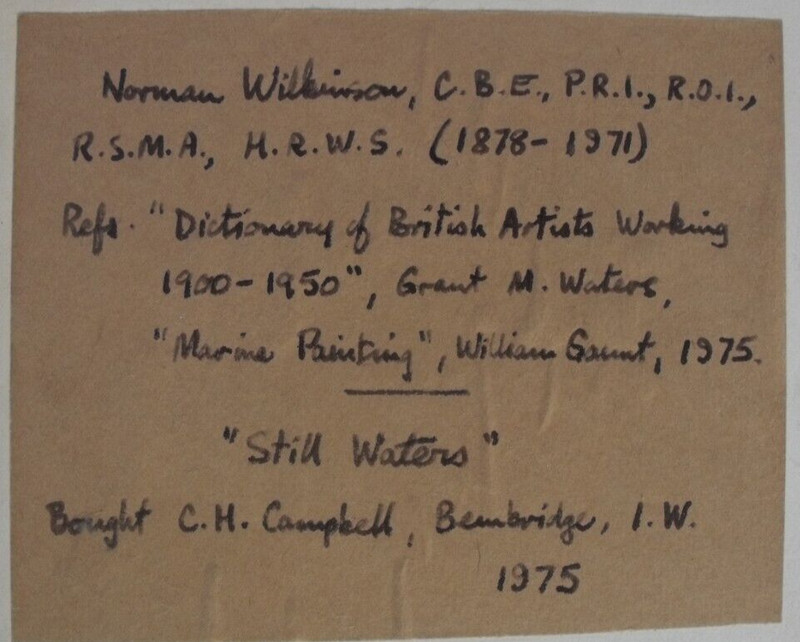 Norman Wilkinson, C.B.E., P.R.I., R.O.I.,
R.S.M.A., H.R.W.S. (1878-1971)
Refs. "Dictionary of British Artists Working
1900-1950", Grant M. Waters,
"Marine Painting", William Gaunt, 1975.
"Still Waters"
Bought C.H. Campbell, Bembridge, I.W.
1975